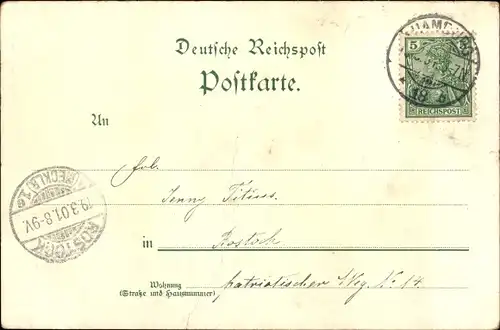 Deutsche Reichspost
Postkarte.
HAMBURG
5 5
REICHSPOST
An
Frl.
Jenny Titius.
ROSTOCK
(MECKLB)
19.3.01.8-9V.
in Rostock
Wohnung
(Straße und Hausnummer)
patriotischer Weg. No 14.